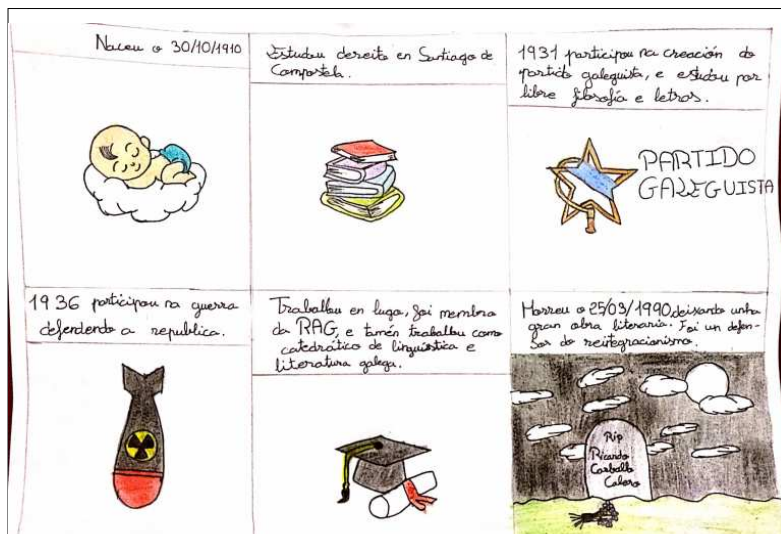 Naceu o 30/10/1910
Estudou dereito en Santiago de
Compostela.
1931 participou na creación do
partido galeguista, e estudou por
libre filosofía e letras.
PARTIDO
GALEGUISTA
1936 participou na guerra
defendendo a republica.
Traballou en lugo, foi membro
da RAG, e tamén traballou como
catedrático de lingüistica e
literatura galega.
Morreu o 25/03/1990, deixando unha
gran obra literaria. Foi un defen-
sor do reintegracionismo.
Rip
Ricardo
Carballo
Calero